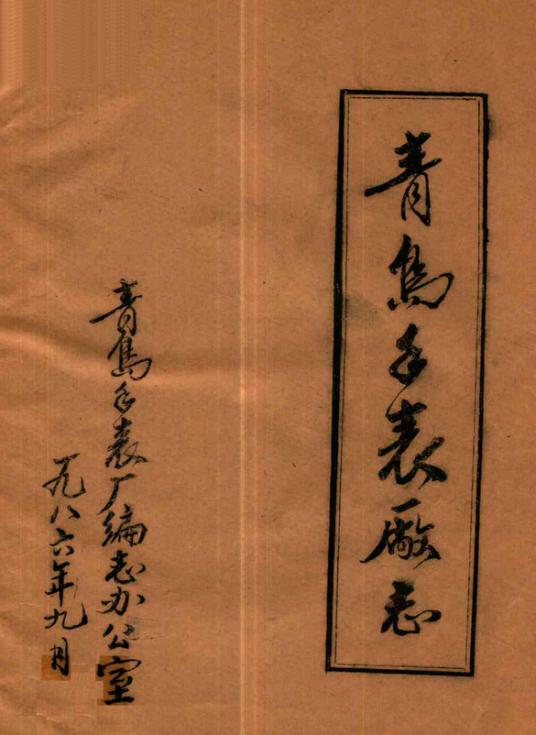 青岛手表廠志
青岛手表厂编志办公室
一九八六年九月